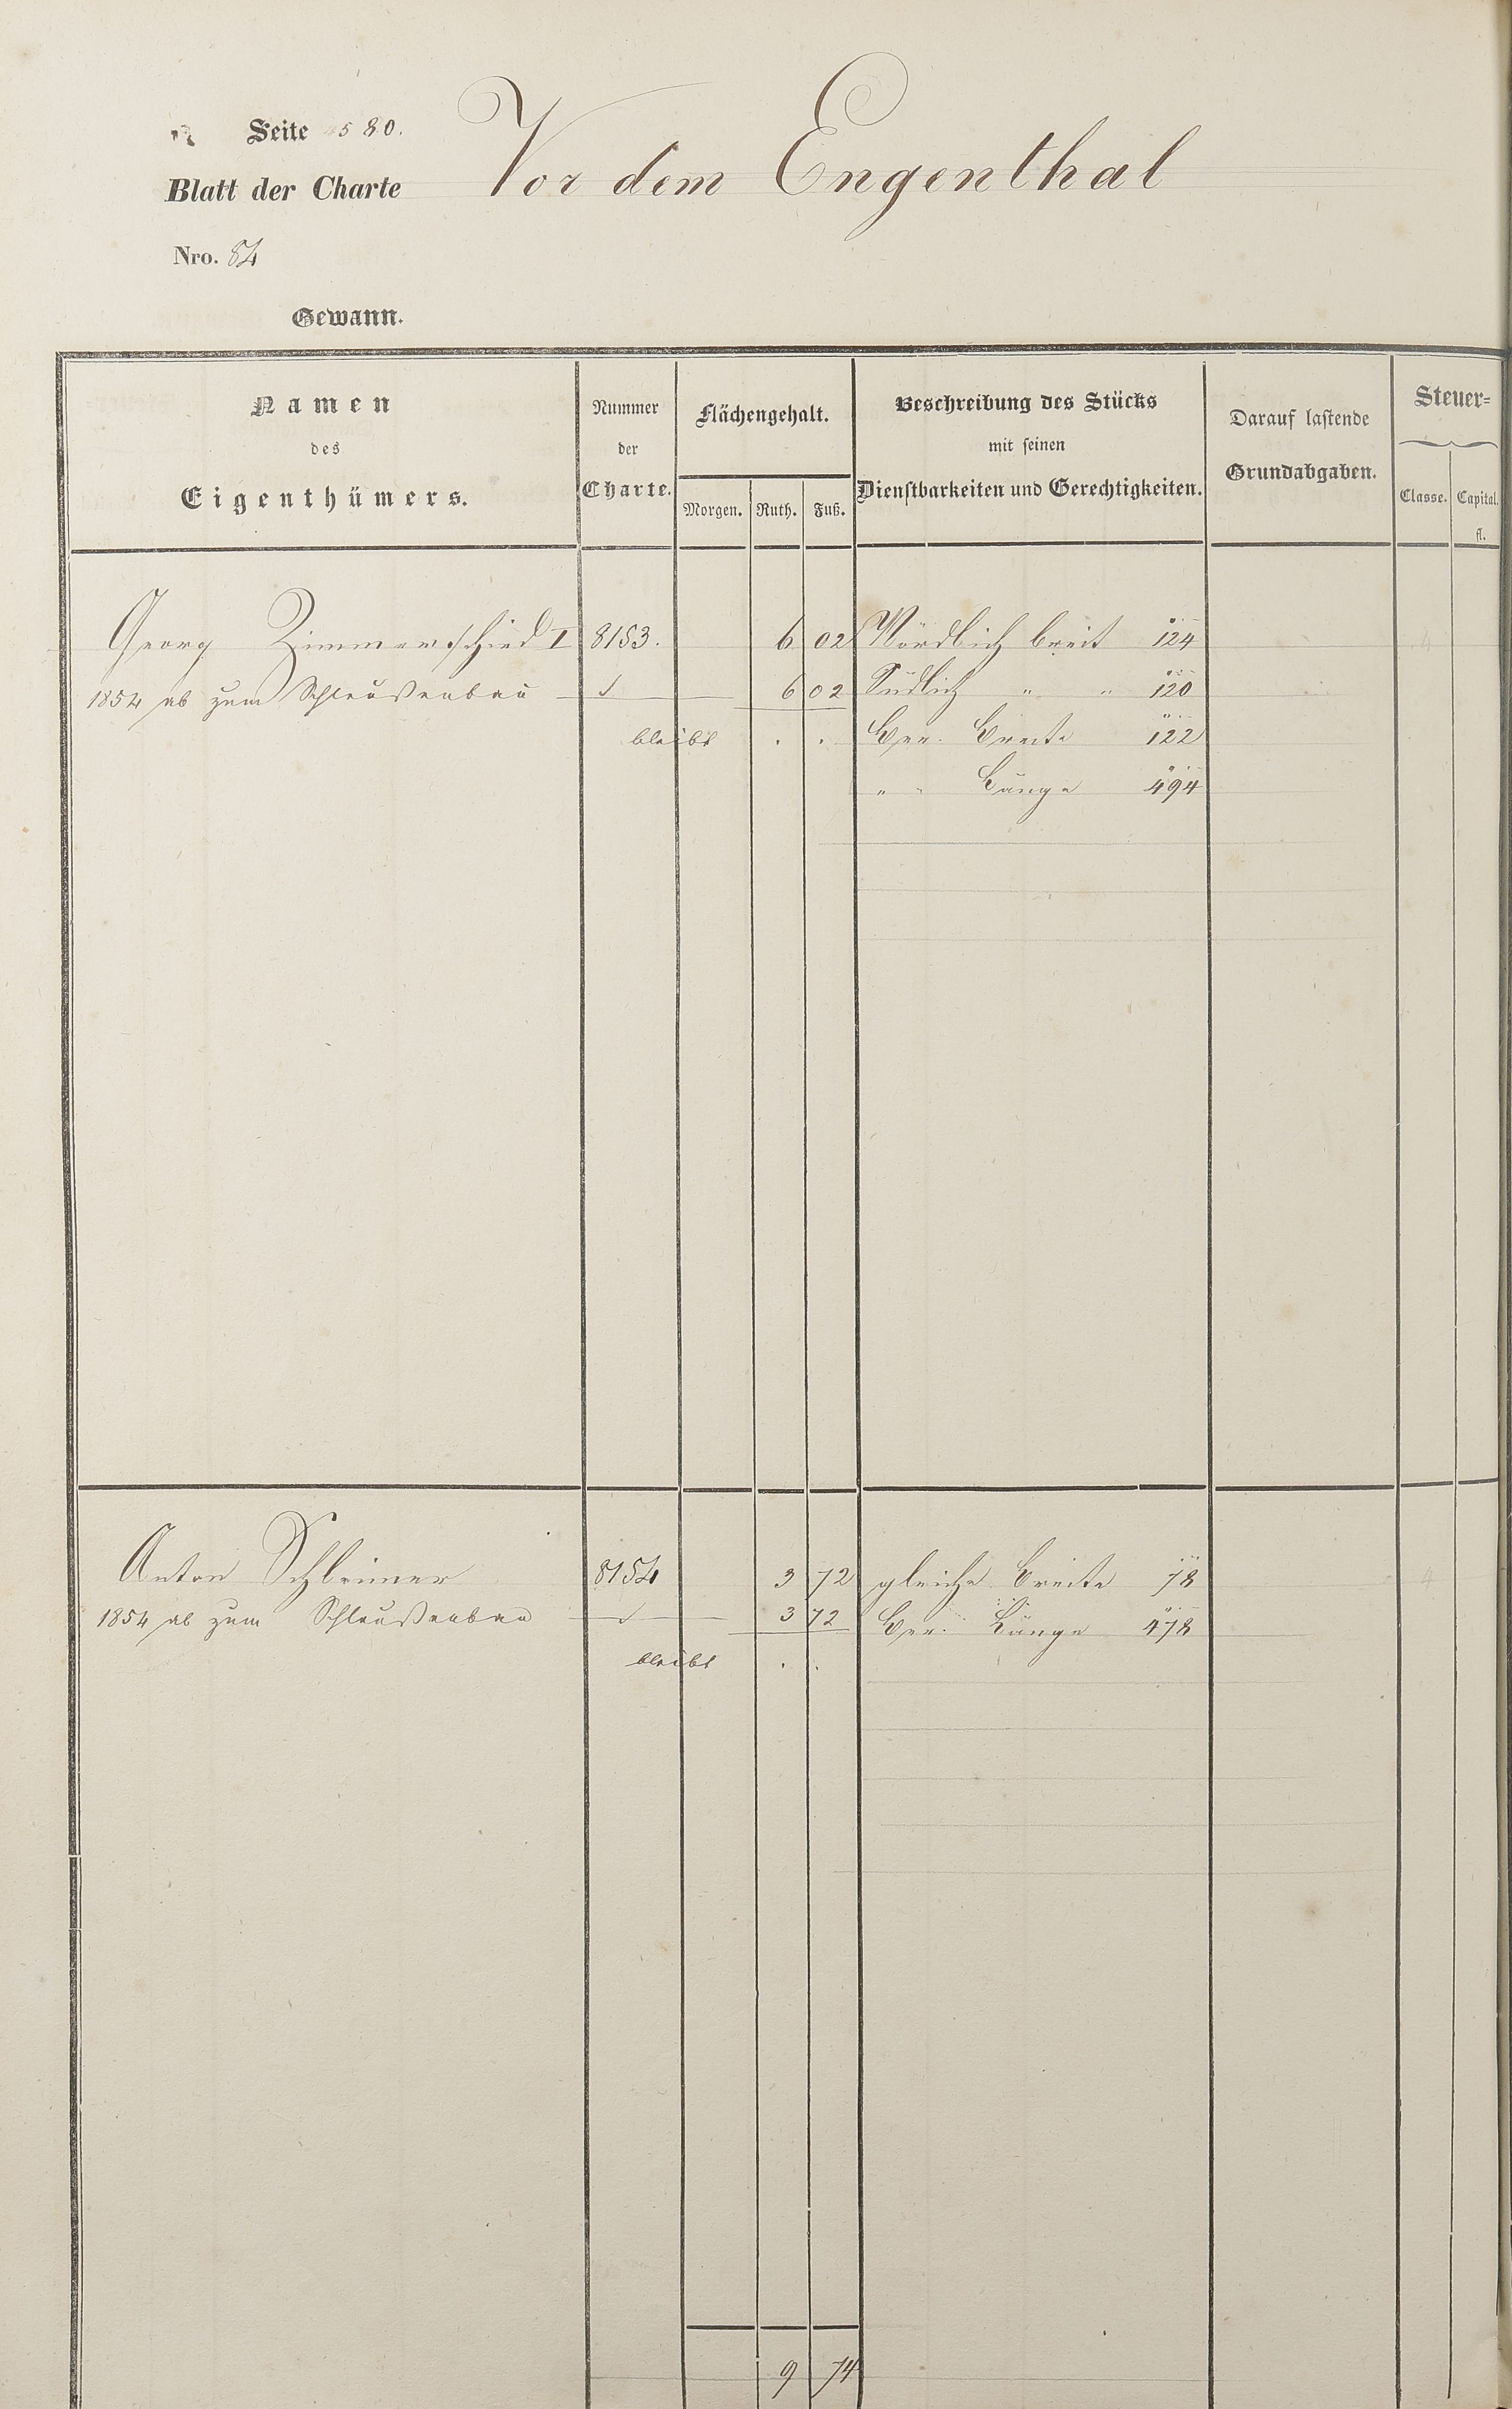 Seite 4580.
Blatt der Charte Vor dem Engenthal
Nro. 84
Gewann.
Namen des Eigenthümers.
Nummer der Charte.
Flächengehalt.
Morgen. Ruth. Fuß.
Beschreibung des Stücks mit seinen Dienstbarkeiten und Gerechtigkeiten.
Darauf lastende Grundabgaben.
Steuer=
Classe. Capital. fl.
Georg Zimmerschied I 8153. 6 02 Nördlich breit 124
1854 ab zum Schleußenbau 6 02 Südlich " " 120
bleibt . . Ber. Breite 122
" " Länge 494
Anton Schleimer 8154 3 72 gleiche Breite 78
1854 ab zum Schleußenbau 3 72 Ber. Länge 478
bleibt . .
9 74